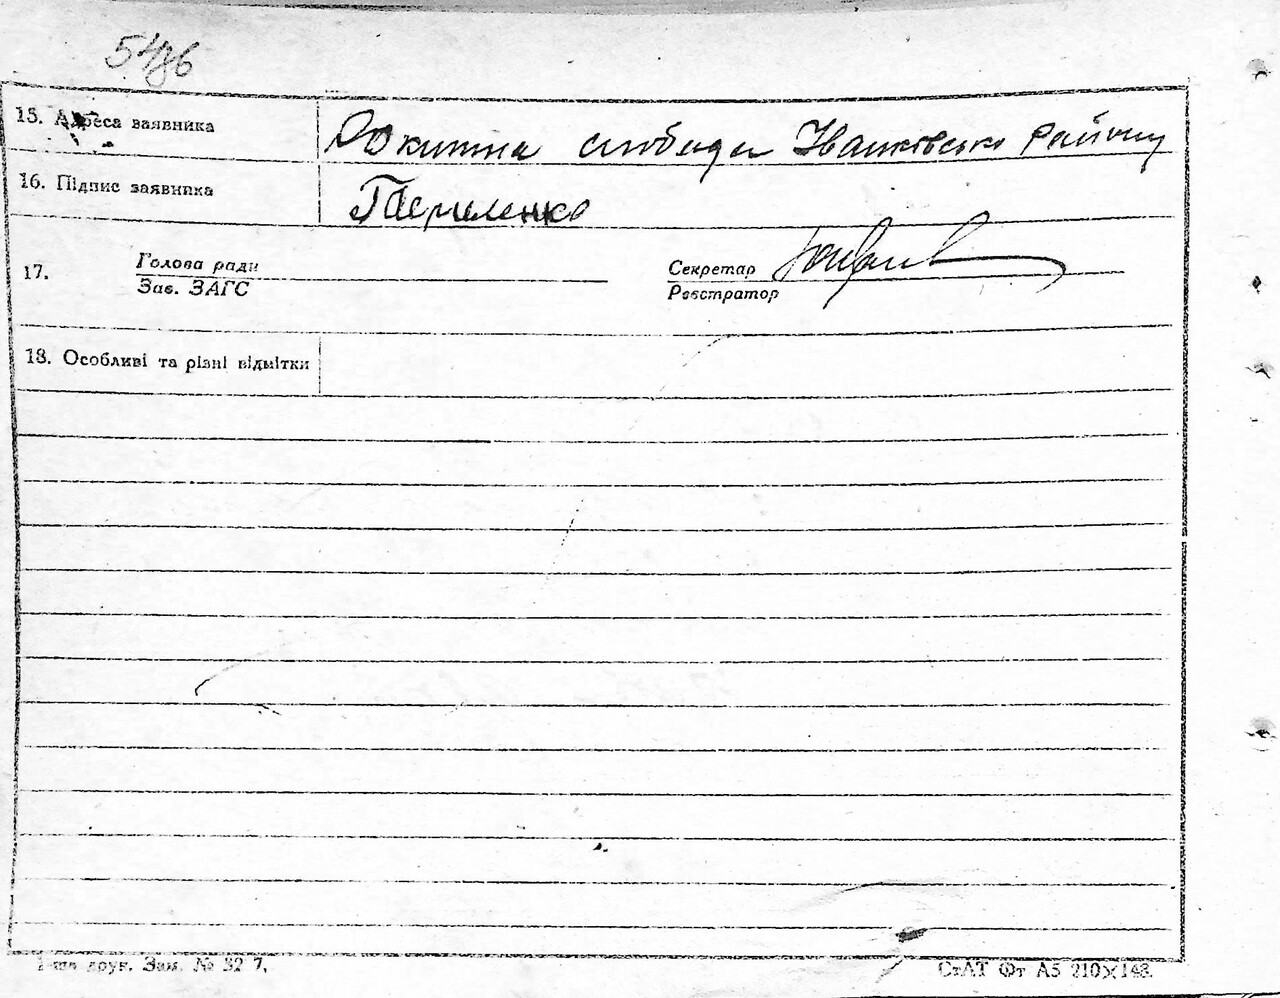 5486
15. Адреса заявника Рокитна слобода Іванковсько району
16. Підпис заявника
17. Голова ради
Зав. ЗАГС
Секретар
Реєстратор
18. Особливі та різні відмітки
друк. Зам. № 32 7.
СтАТ Фт А5 210×148